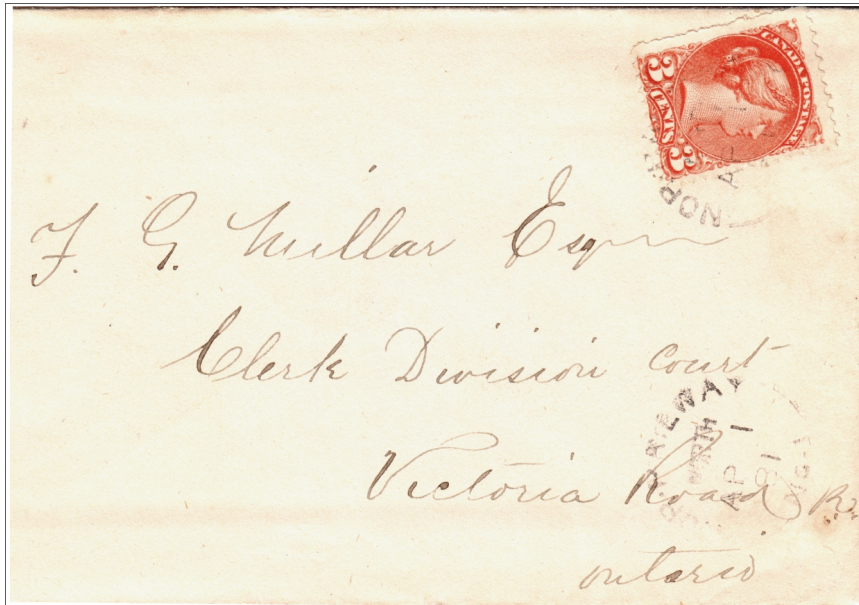 CANADA POSTAGE
3 CENTS 3
NOR
AP
F. G. Millar Esqr
Clerk Division Court
Victoria Road
Ontario
NORTH
AP 1
81